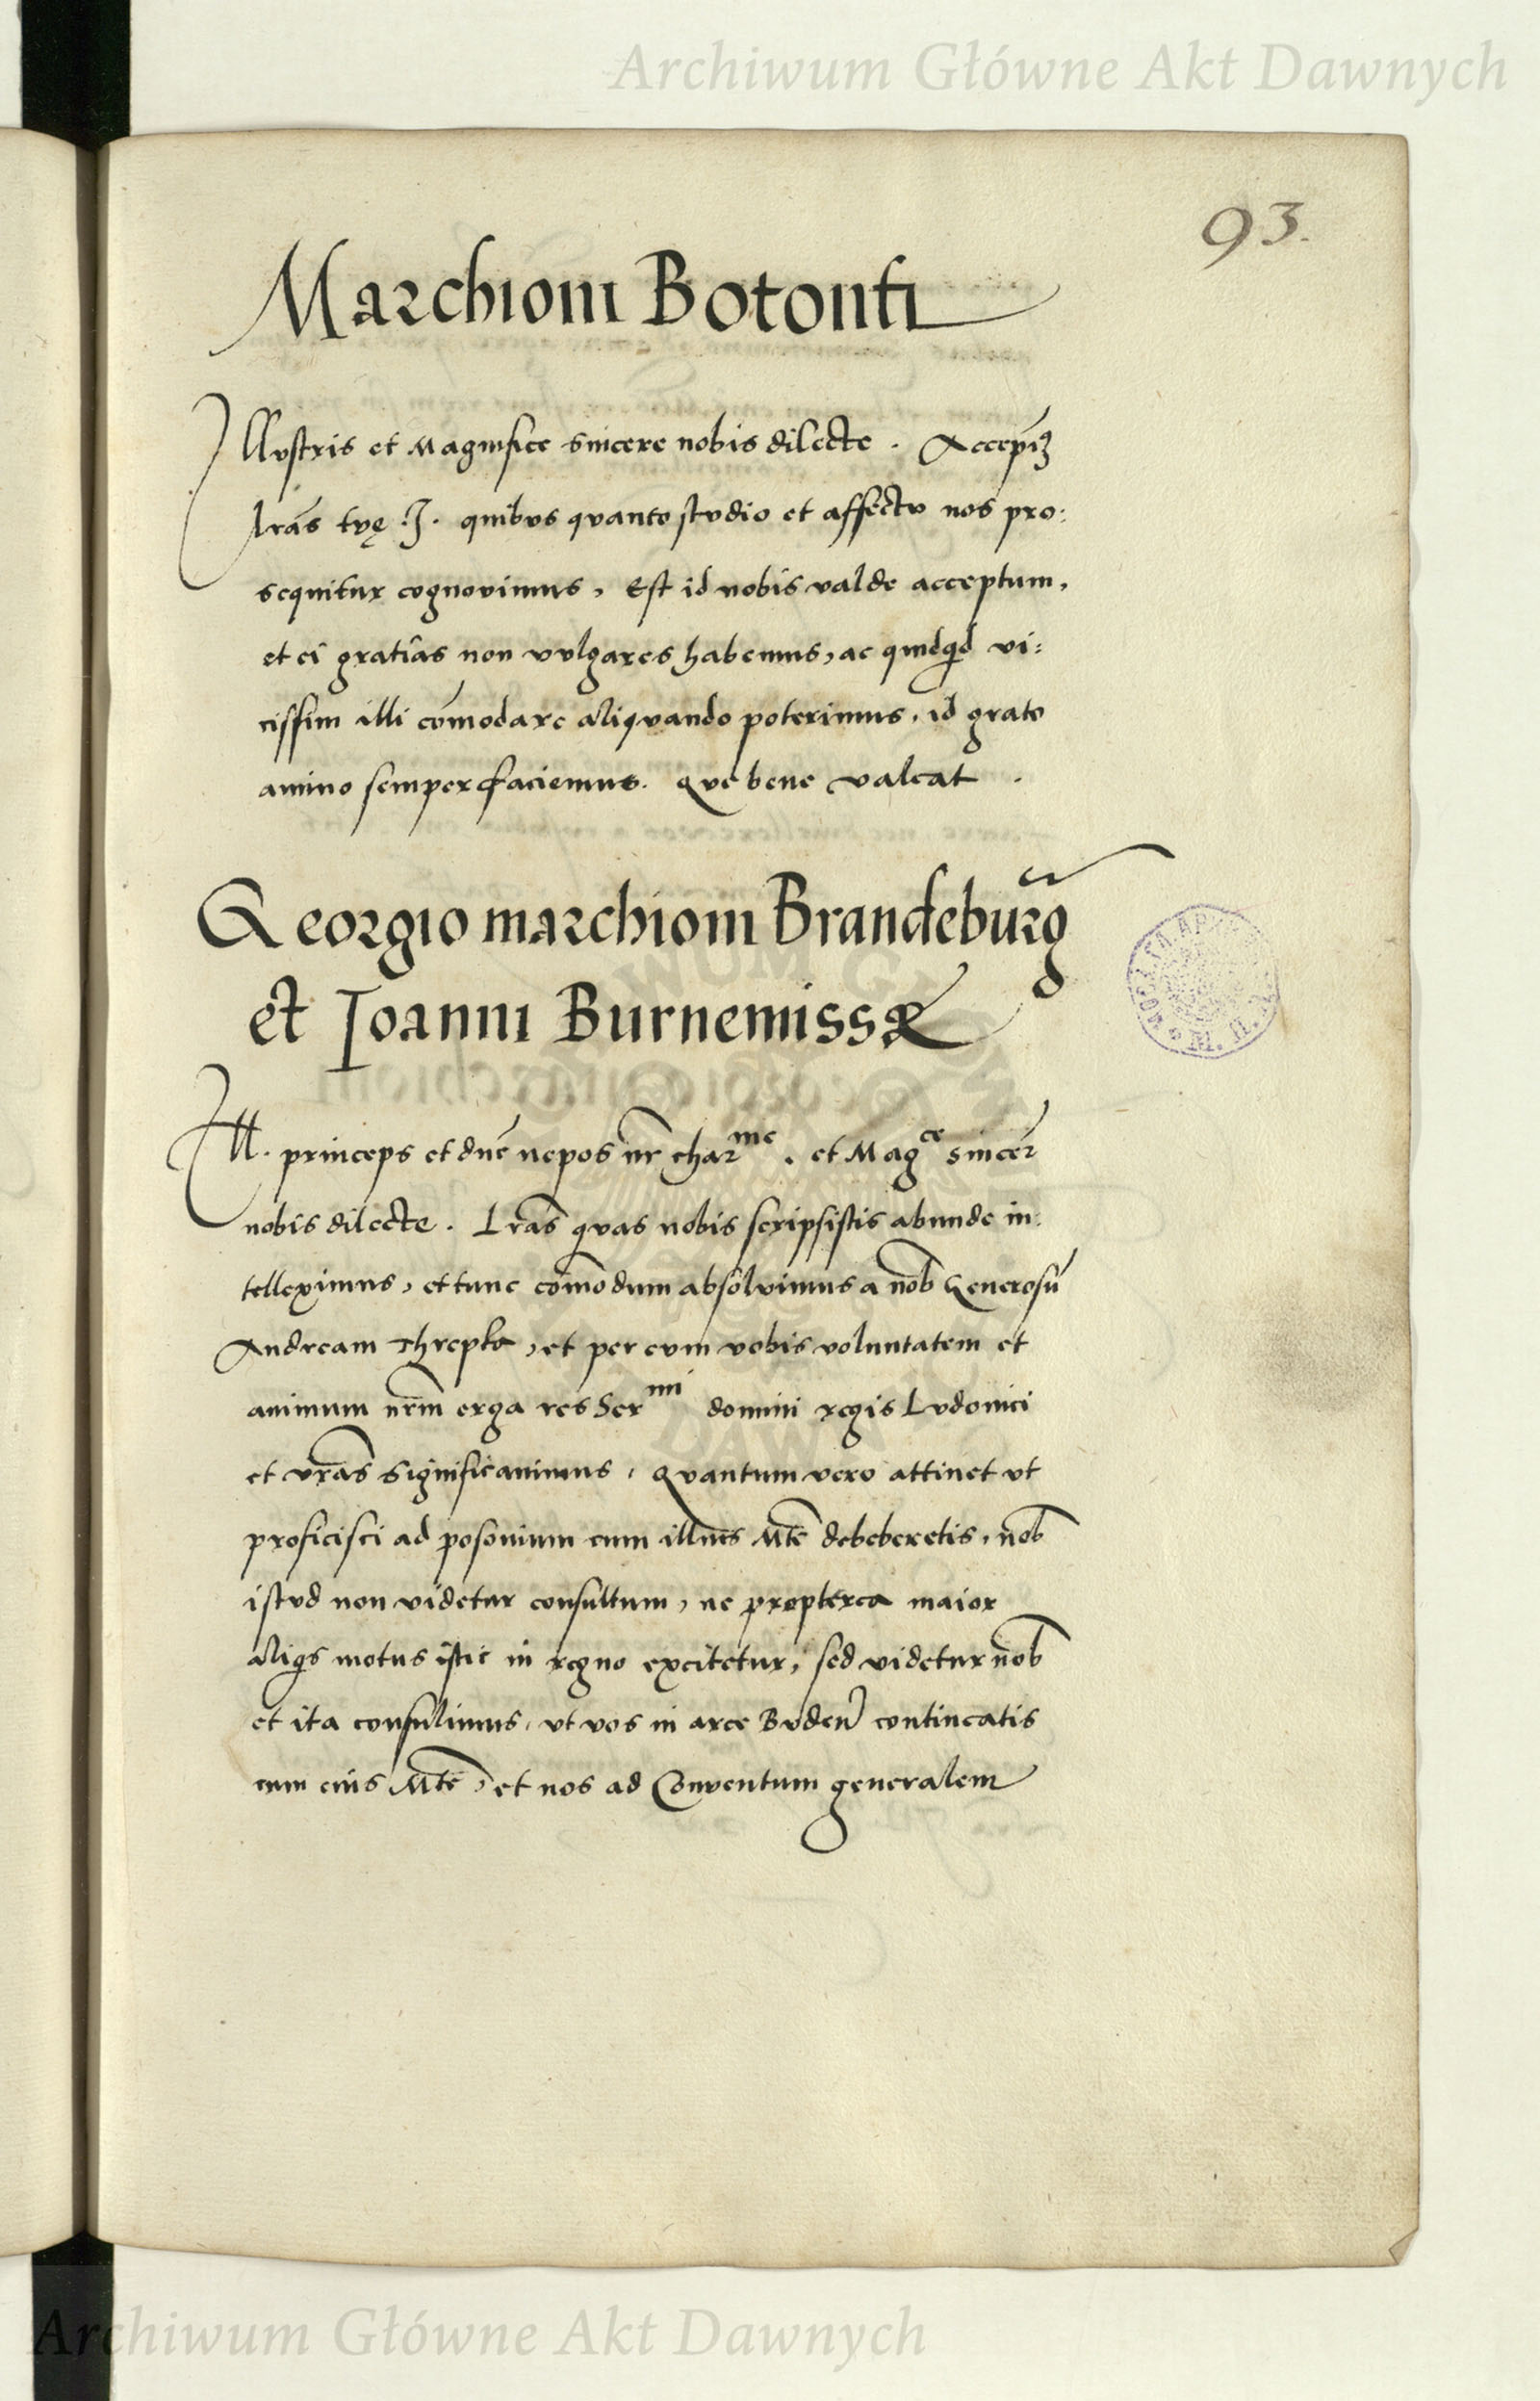 Archiwum Główne Akt Dawnych
93.
Marchioni Botonti
Illustris et Magnifice sincere nobis dilecte . Accepimꝫ
lrãs tvę .J. quibus qvanto stvdio et affectv nos pro:
sequitur cognovimus, Est id nobis valde acceptum,
et ei gratias non vvlgares habemus, ac quidqͥd vi:
cissim illi cõmodare aliqvando poterimus, id grato
animo semper faciemus. Qve bene valeat .
Georgio marchioni Brandeburg̃
et Ioanni Burnemissæ
Ill. princeps et dñe nepos nr̃ charᵐᵉ . et Magᶜᵉ sincer̃
nobis dilecte . Lrãs qvas nobis scripsistis abunde in:
telleximus, et tunc cõmodum absolvimus a nob̃ Generosũ
Andream Threpka, et per evm vobis volvntatem et
animum nr̃m erga res Serᵐⁱ domini regis Lvdovici
et vr̃as significavimus, Qvantum vero attinet vt
proficisci ad posonium cum illius Mte debeberetis, nob̃
istvd non videtur consultum, ne propterea maior
aliqͥs motus istic in regno excitetur, sed videtur nob̃
et ita consulimus, vt vos in arce Bvden̄ contineatis
cum eius Mte, et nos ad Conventum generalem
Archiwum Główne Akt Dawnych